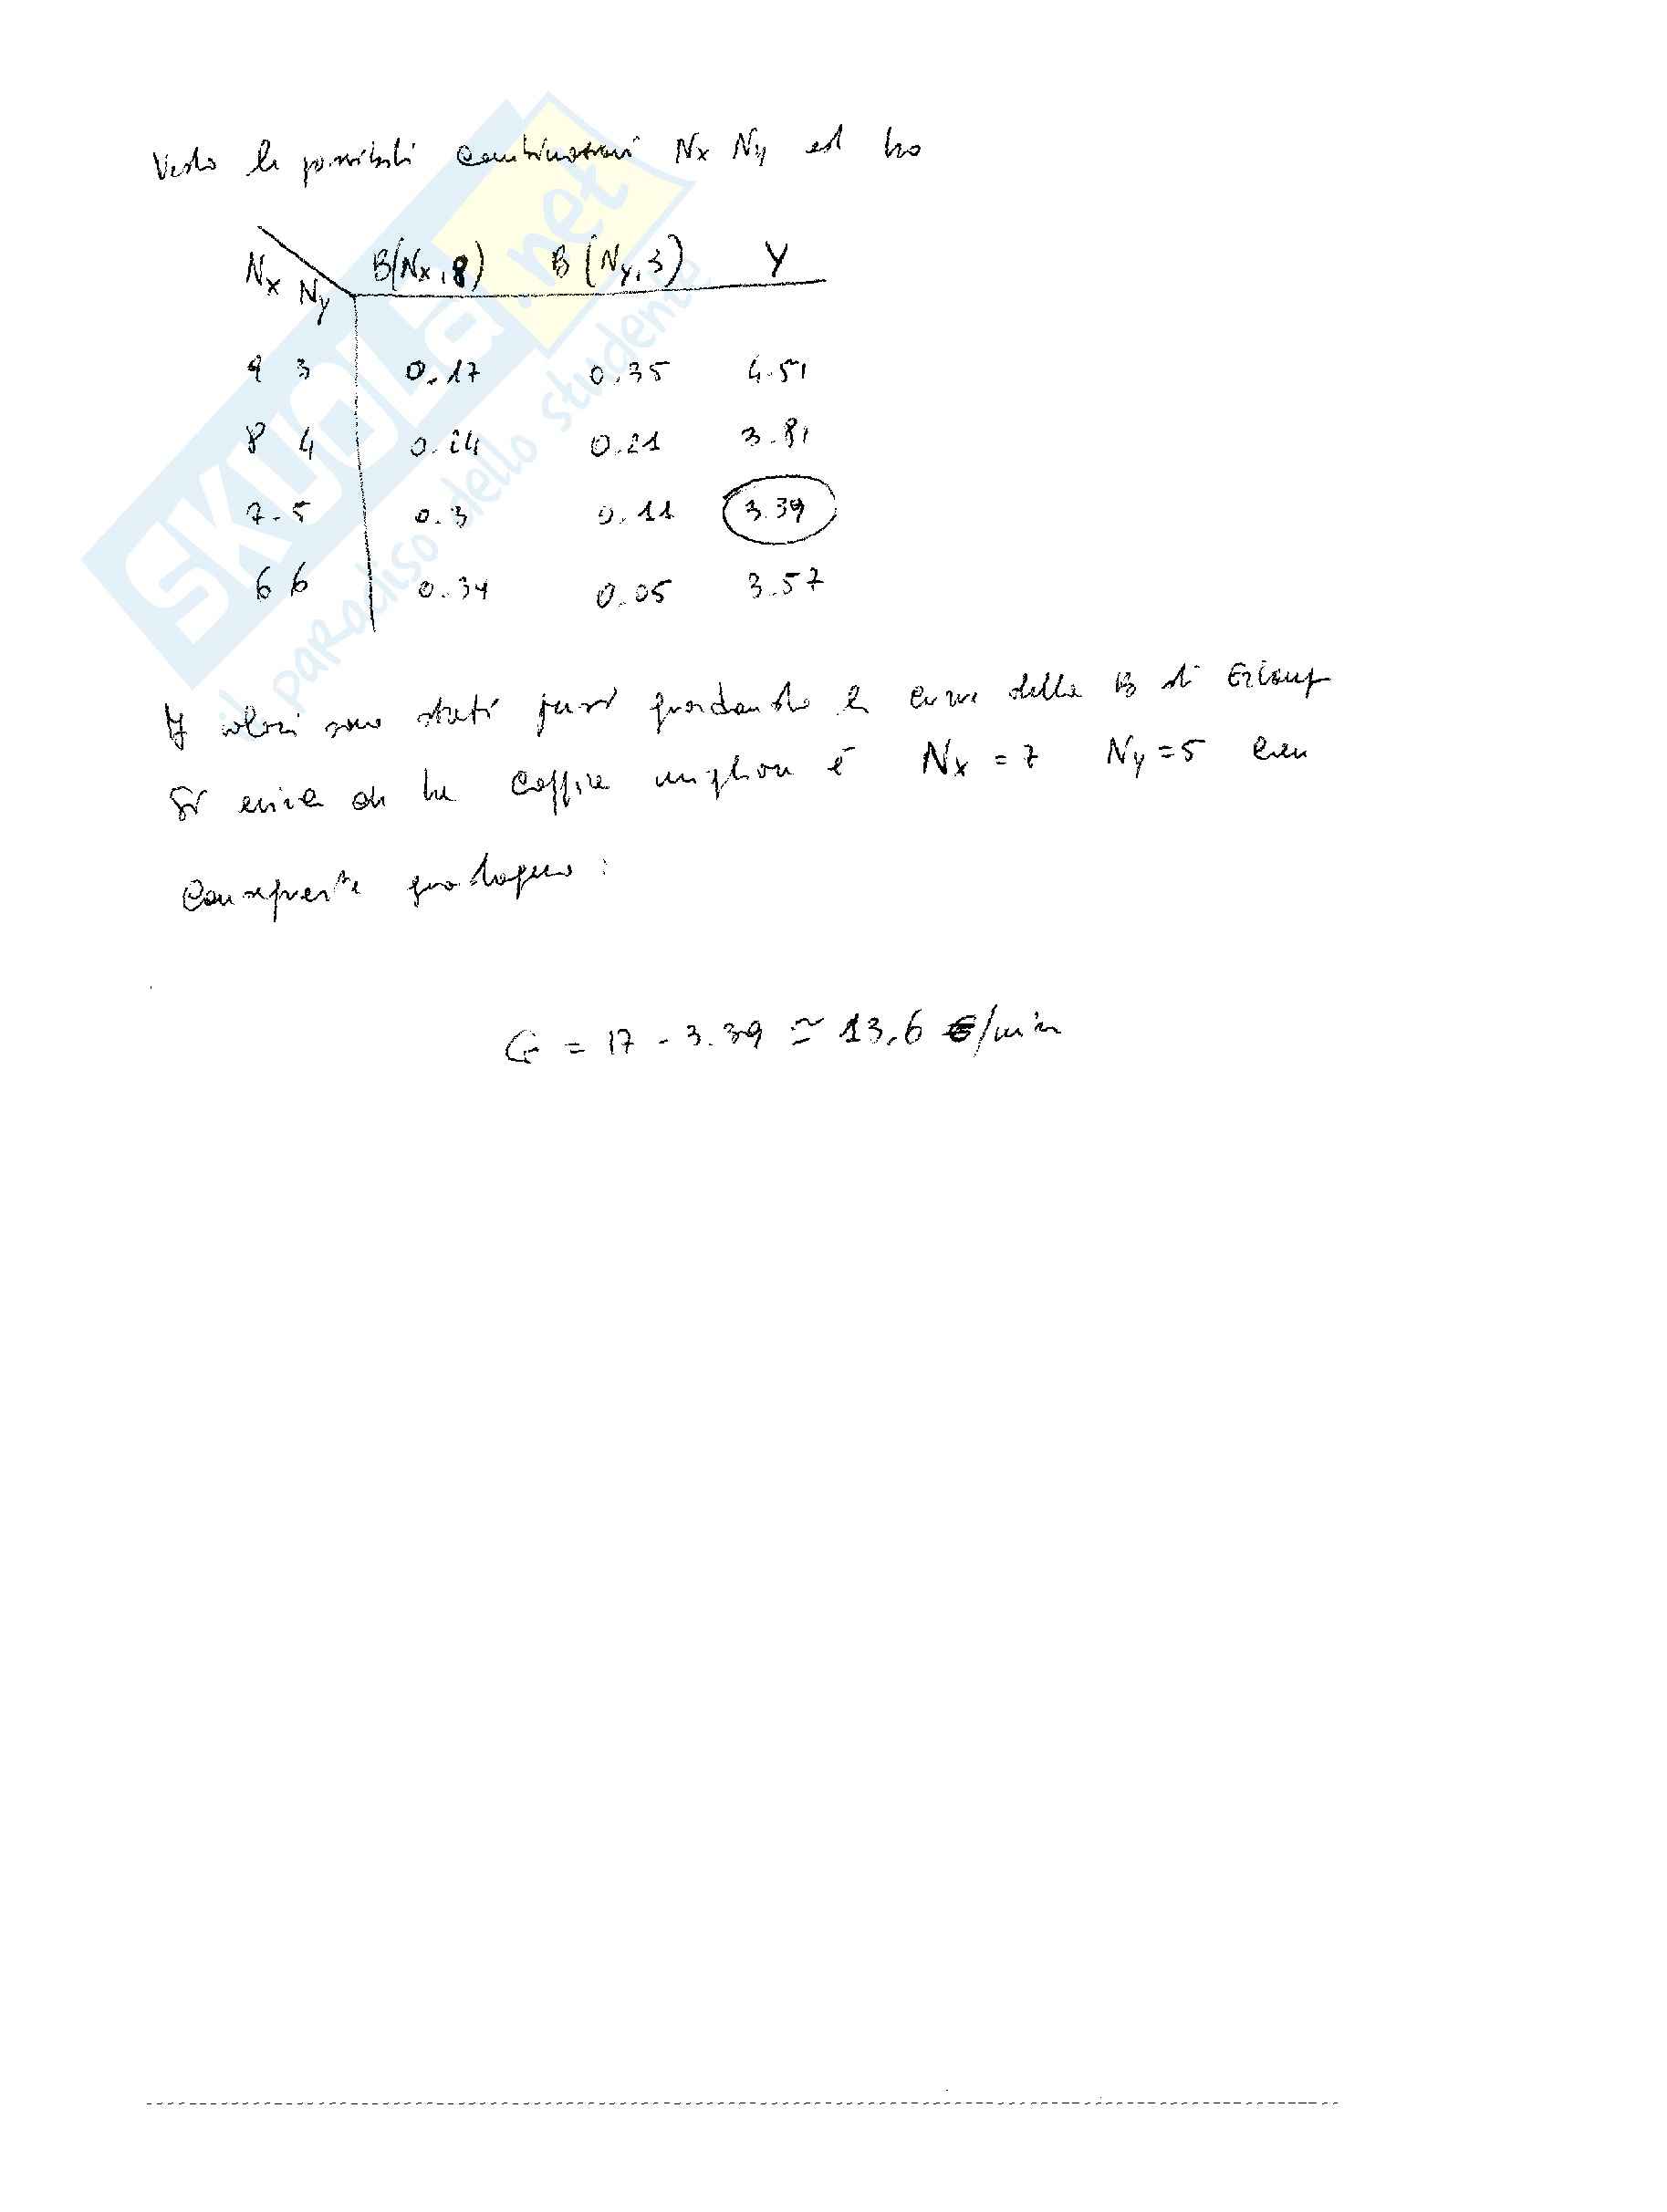 Vedo le possibili combinazioni Nx Ny ed ho
Nx Ny B(Nx,8) B(Ny,3) Y
9 3 0.17 0.35 4.51
8 4 0.24 0.21 3.81
7-5 0.3 0.11 3.39
6 6 0.34 0.05 3.57
valori sono stati presi guardando le curve della B di Erlang
Si evince che la coppia migliore è Nx = 7 Ny = 5 con
conseguente guadagno :
G = 17 - 3.39 ≃ 13,6 €/min
SKUOLa.net
il paradiso dello studente